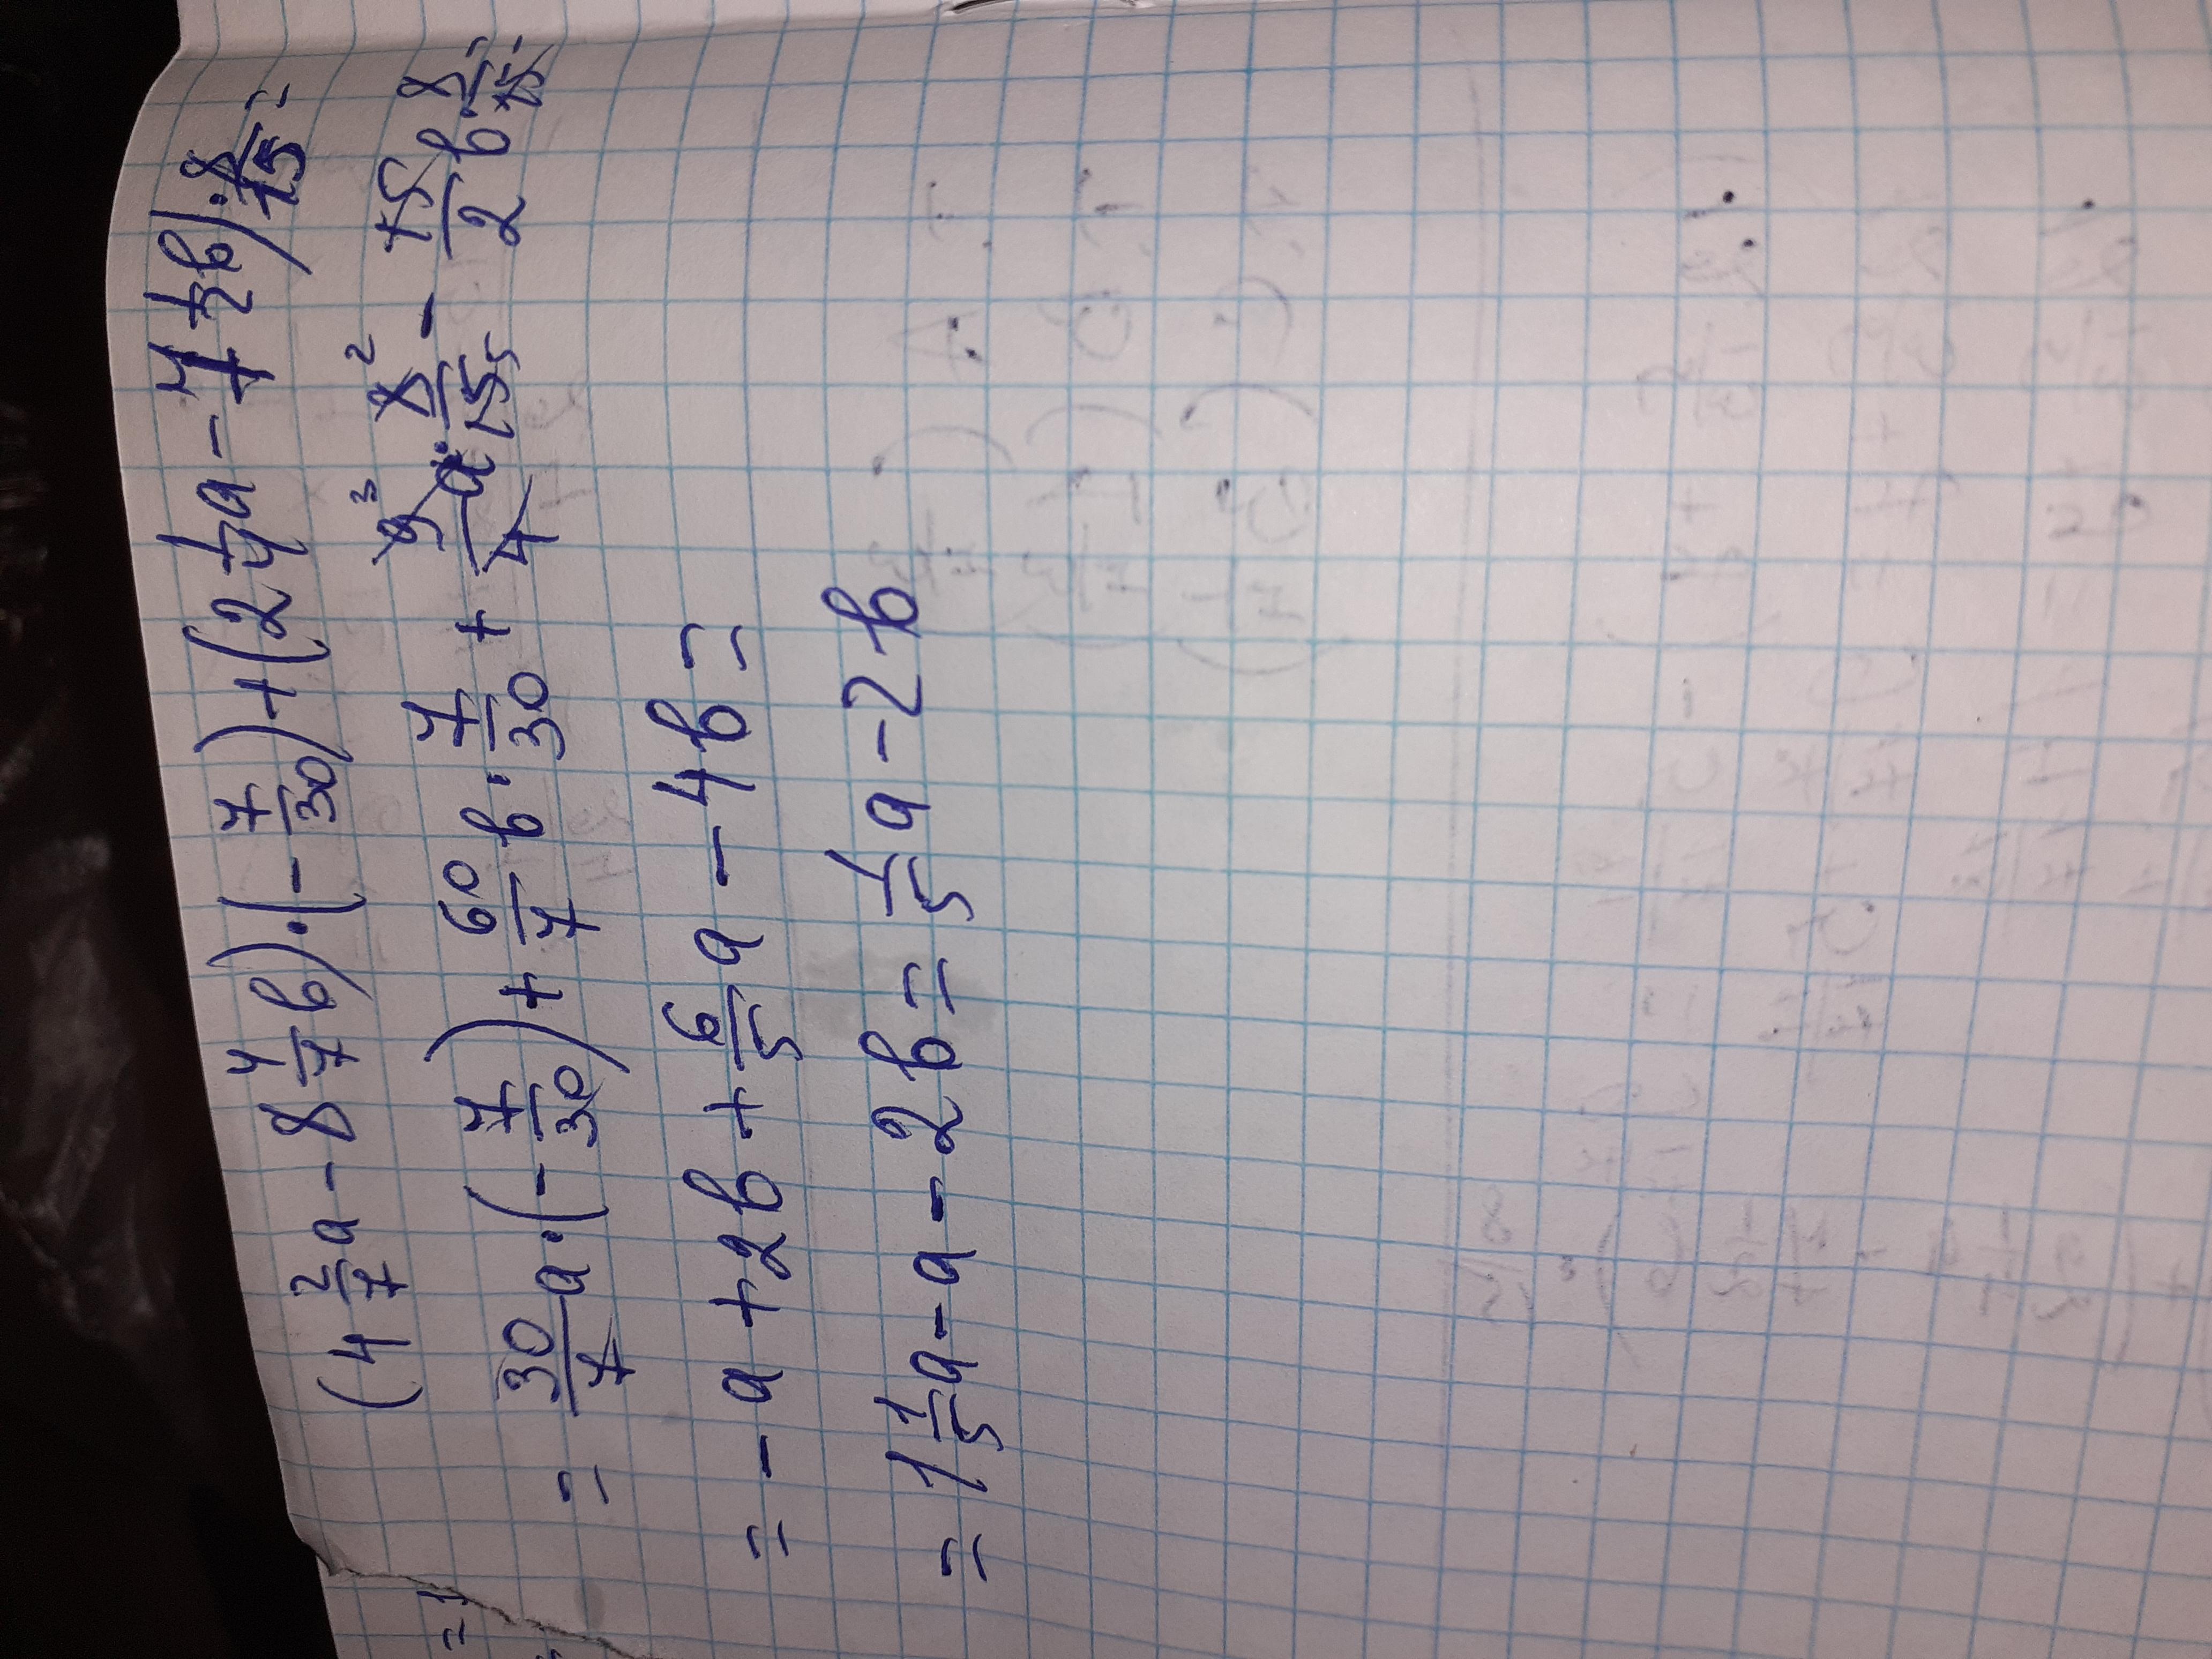 (4 2/7 a - 8 4/7 b) · (- 7/30) + (2 1/4 a - 7 1/2 b) · 8/15 =
= 30/7 a · (- 7/30) + 60/7 b · 7/30 + 9/4 a · 8/15 - 15/2 b · 8/15 =
= - a + 2b + 6/5 a - 4b =
= 1 1/5 a - a - 2b = 1/5 a - 2b